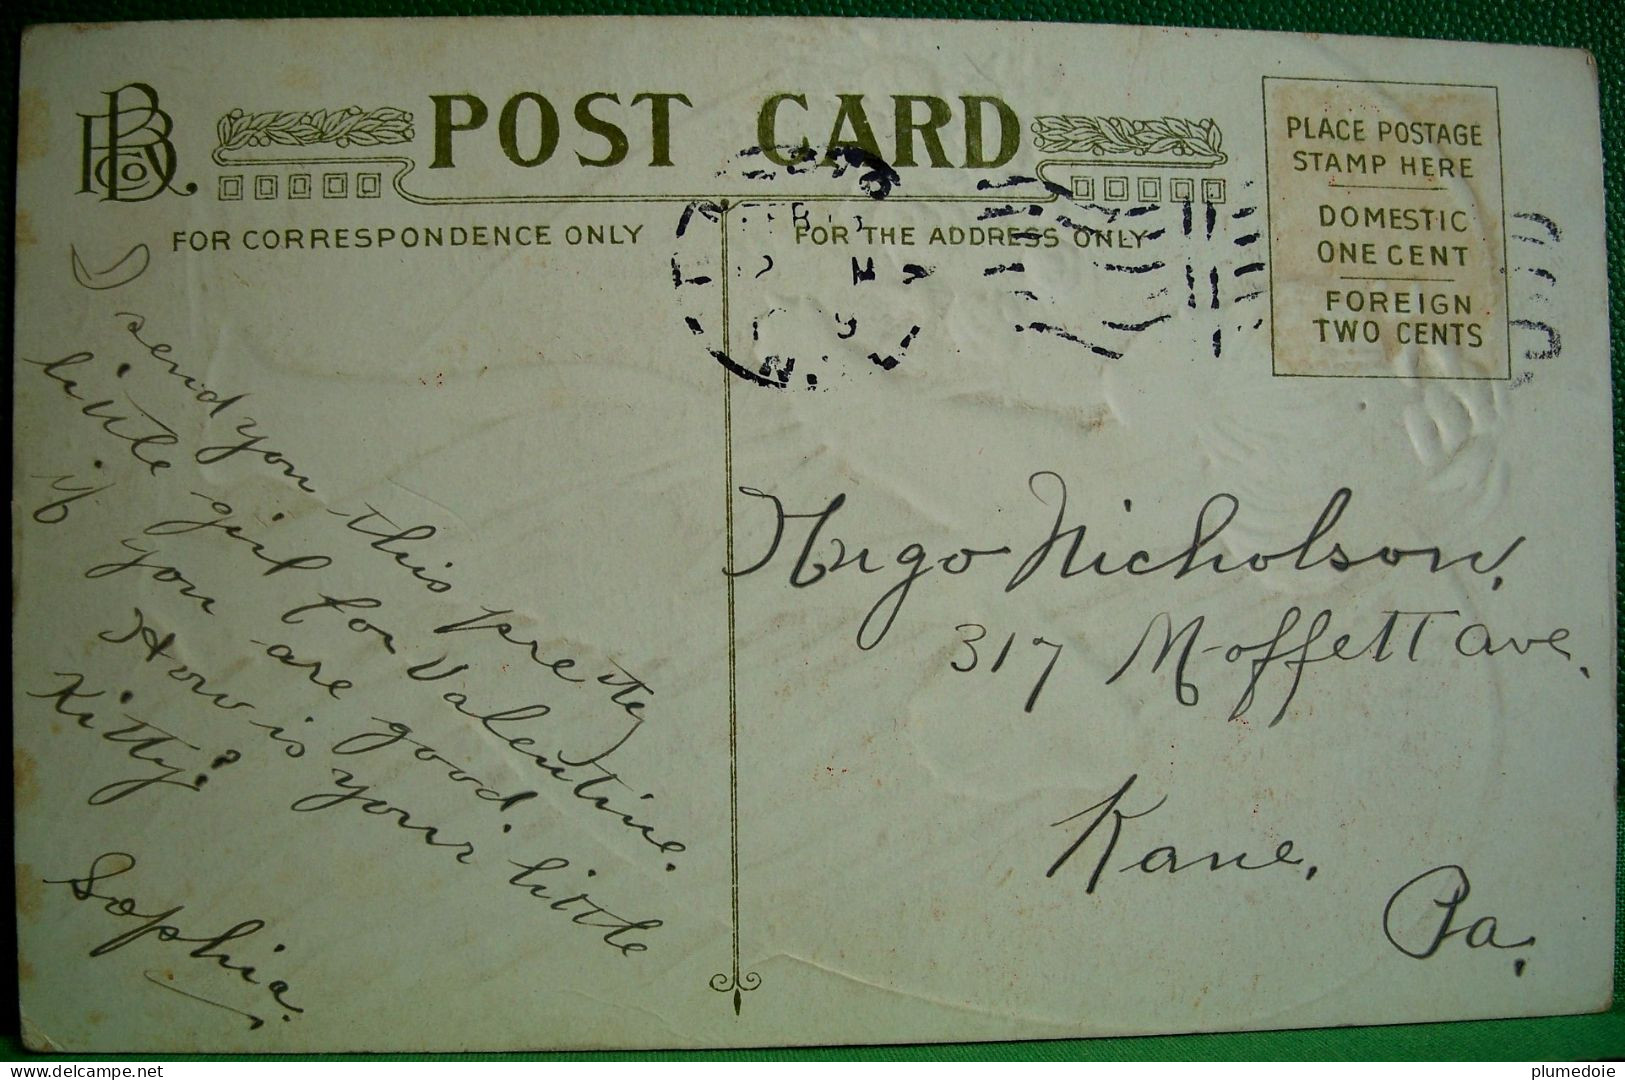 POST CARD
PLACE POSTAGE
STAMP HERE
DOMESTIC
ONE CENT
FOREIGN
TWO CENTS
FOR CORRESPONDENCE ONLY
FOR THE ADDRESS ONLY
I send you this pretty
little girl for Valentine.
if you are good.
How is your little
Kitty?
Sophia.
Hugo Nicholson,
317 Moffett ave.
Kane,
Pa,
delcampe.net
plumedoie